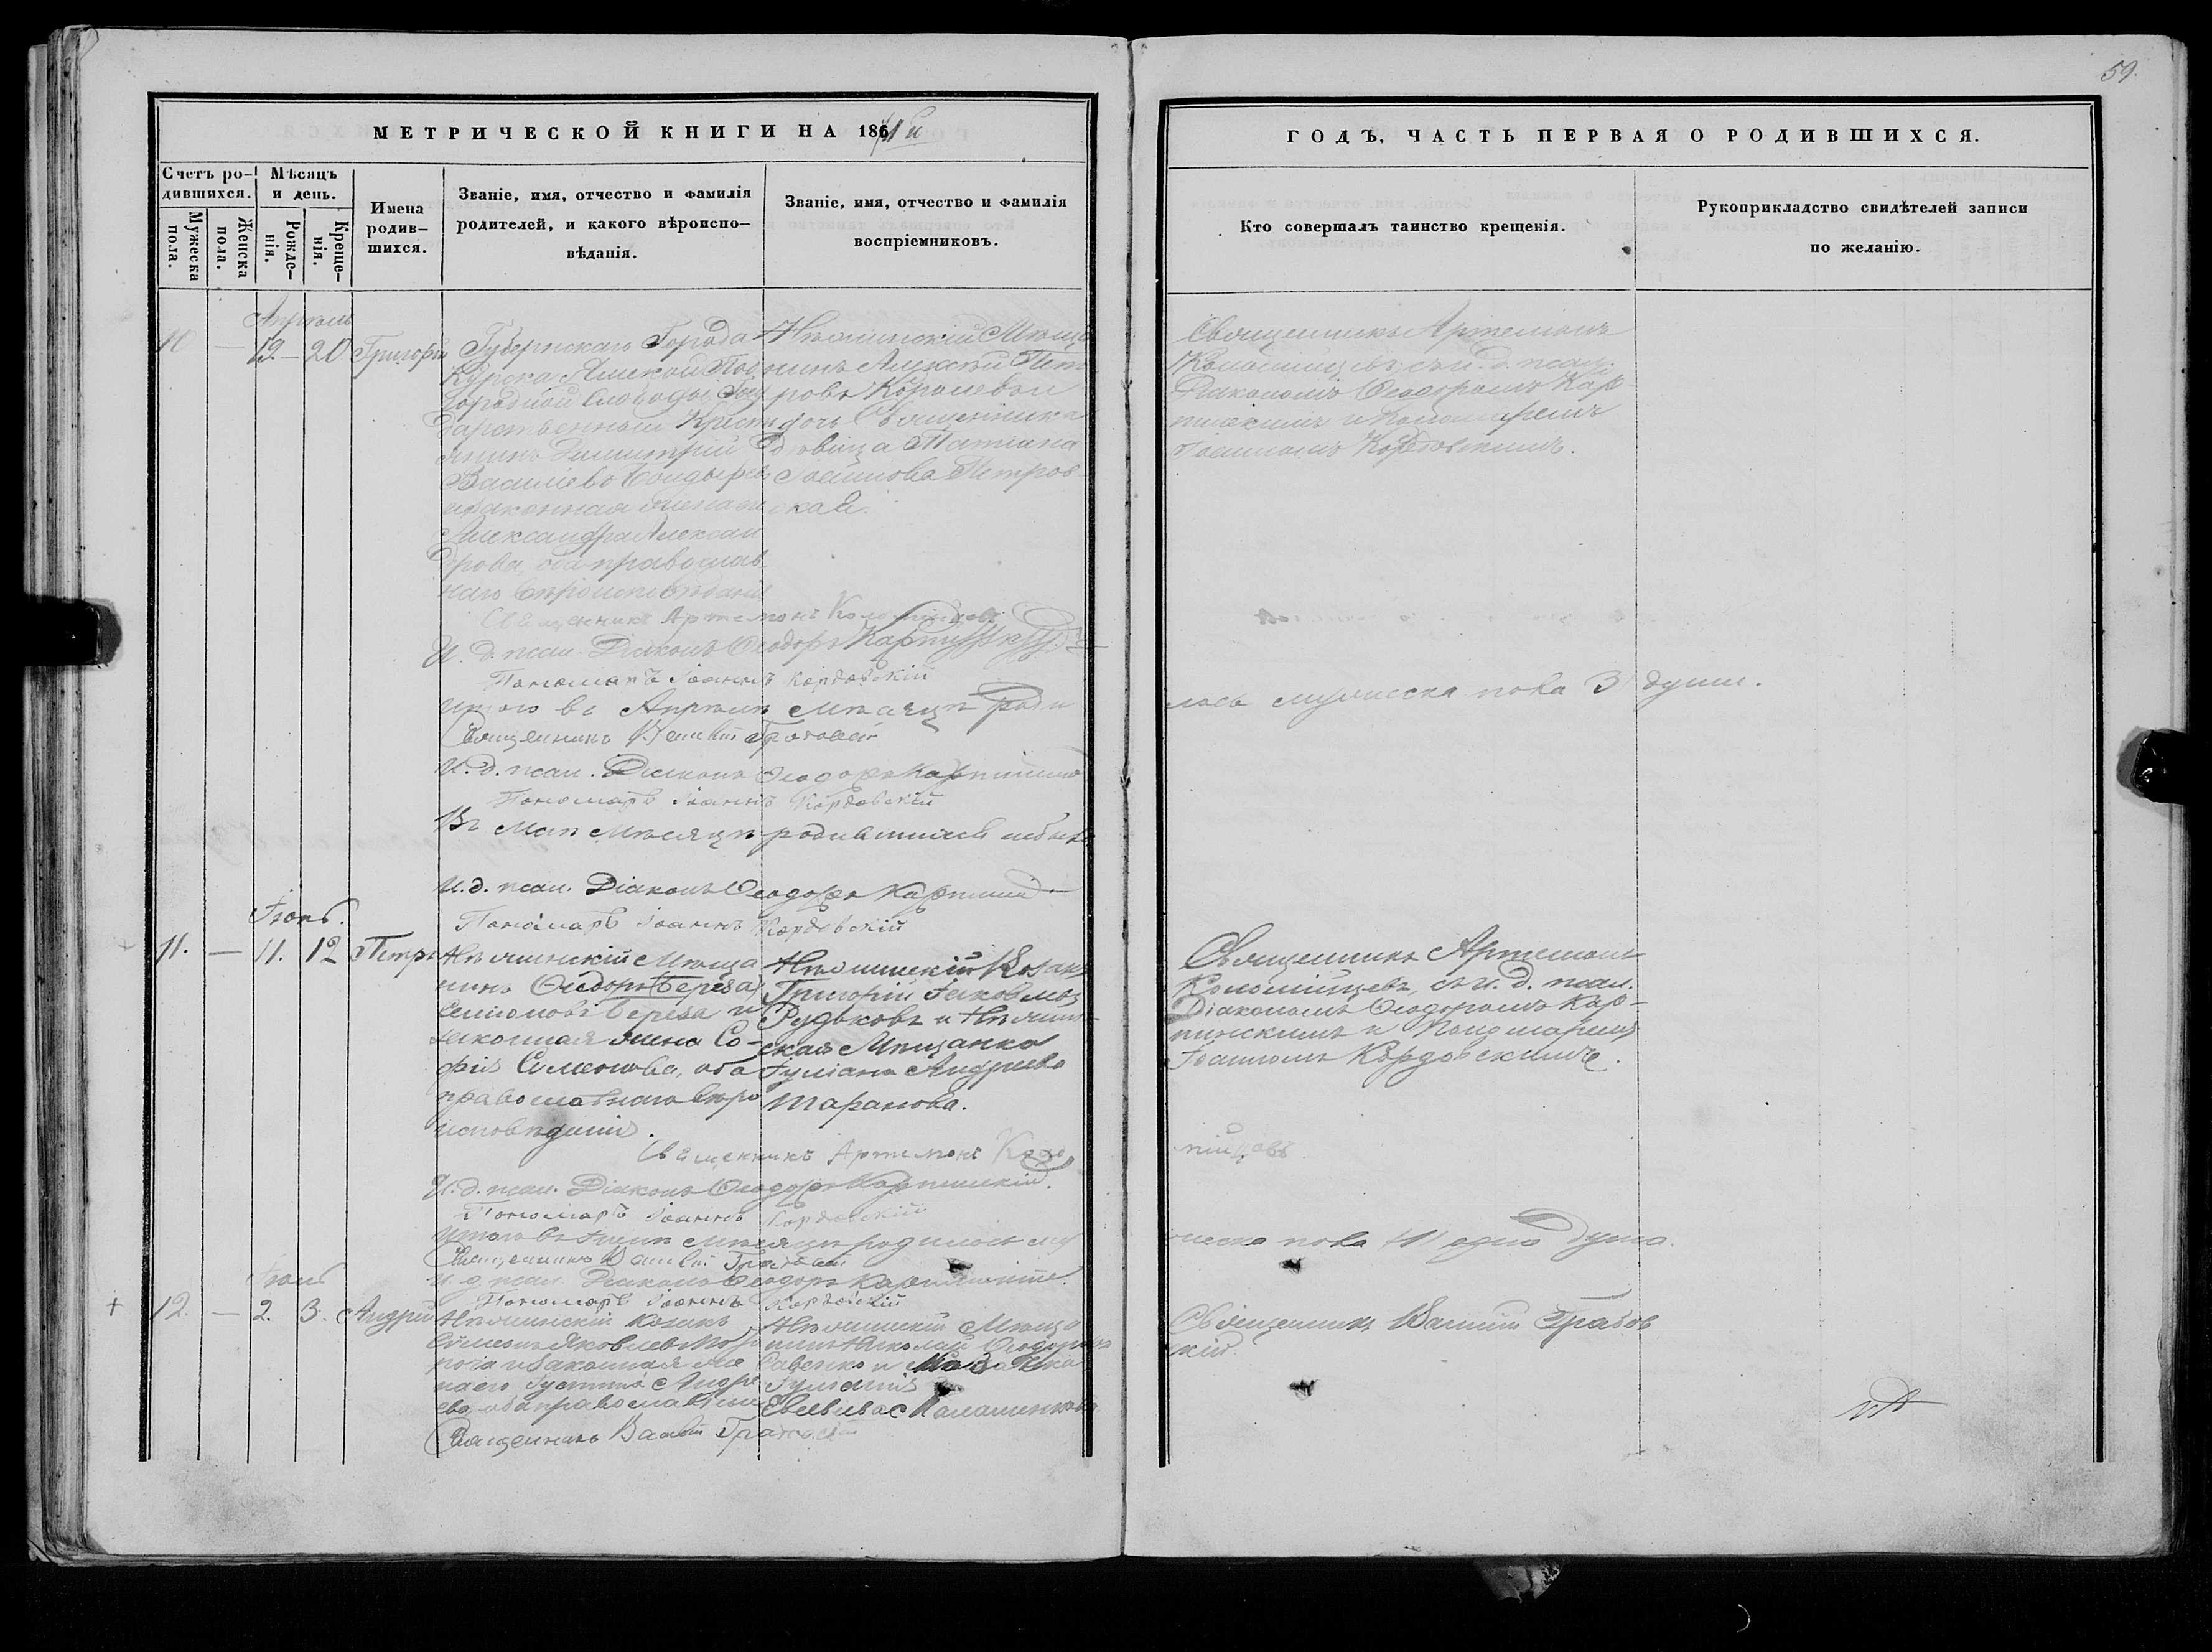 59.
МЕТРИЧЕСКОЙ КНИГИ НА 1861й
ГОДЪ, ЧАСТЬ ПЕРВАЯ О РОДИВШИХСЯ.
Счетъ ро-
дившихся.
Мужеска
пола.
Женска
пола.
Мѣсяцъ
и день.
Рожде-
нія.
Креще-
нія.
Имена
родив-
шихся.
Званіе, имя, отчество и фамилія
родителей, и какого вѣроиспо-
вѣданія.
Званіе, имя, отчество и фамилія
воспріемниковъ.
Кто совершалъ таинство крещенія.
Рукоприкладство свидѣтелей записи
по желанію.
Апрѣль
— 19 — 20 Григорій
Губернскаго Города
Курска Ямской Под
городной Слободы Госу
дарственный Кресть
янинъ Димитрій
Василіевъ Бондыревъ
и законная жена
Александра Алексан
дрова, оба православ
наго вѣроисповѣданія
Нѣжинскій Мѣща
нинъ Алексѣй Пет
ровъ и
дочь Священника
дѣвица Татіана
Іоаннова Петров
ская.
Священникъ Артемонъ
Коломійцевъ, съ и. д. псал.
Діакономъ Ѳеодоромъ Кар
пинскимъ и Пономаремъ
Іоанномъ Кордовскимъ.
Священникъ Артемонъ Коломійцевъ
И. д. псал. Діаконъ Ѳеодоръ Карпинскій
Пономарь Іоаннъ Кордовскій
Итого въ Апрѣлѣ Мѣсяцѣ роди
лось мужеска пола 3 души.
Священникъ Василій Грабовскій
И. д. псал. Діаконъ Ѳеодоръ Карпинскій
Пономарь Іоаннъ Кордовскій
Въ Маѣ Мѣсяцѣ родившихся небыло
И. д. псал. Діаконъ Ѳеодоръ Карпинскій
Пономарь Іоаннъ Кордовскій
Іюнь.
11. — 11. 12 Петръ
Нѣжинскій Мѣща
нинъ Ѳеодоръ (Береза)
Симоновъ Береза и
законная жена Со-
фія Симонова, оба
православнаго вѣро
исповѣданія.
Нѣжинскій Козакъ
Григорій Іаковлевъ
Рудьковъ и Нѣжин-
ская Мѣщанка
Іуліана Андреева
Таранова.
Священникъ Артемонъ
Коломійцевъ, съ и. д. псал.
Діакономъ Ѳеодоромъ Кар-
пинскимъ и Пономаремъ
Іоанномъ Кордовскимъ.
Священникъ Артемонъ Коло
мійцовъ
И. д. псал. Діаконъ Ѳеодоръ Карпинскій.
Пономарь Іоаннъ Кордовскій
Итого въ Іюнѣ Мѣсяцѣ родилось му
жеска пола /1/ одна душа.
Священникъ Василій Грабовскій
И. д. псал. Діаконъ Ѳеодоръ Карпинскій.
Пономарь Іоаннъ Кордовскій
Іюль
+ 12. — 2. 3. Андрій
Нѣжинскій Козакъ
Симеонъ Яковлевъ
и законная же
на его Іустина Андре
ева, оба православные
Нѣжинскій Мѣща
нинъ Николай Ѳеодоровъ
Савенко и
Іуліанія
Священникъ Василій Грабов
скій.
Священникъ Василій Грабовскій